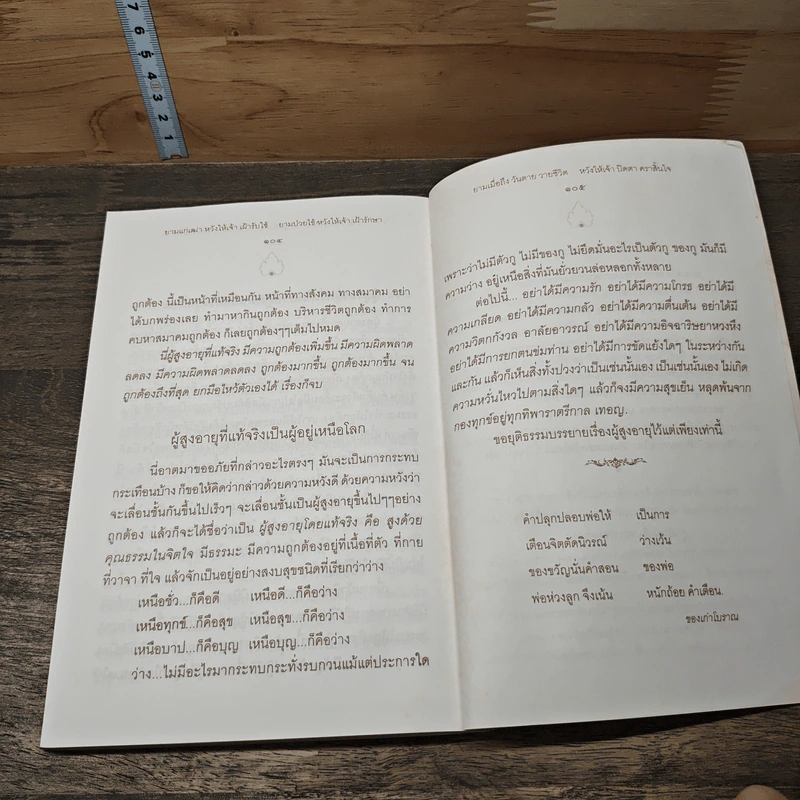 7
6
5
4
3
2
1
ยามแก่เฒ่า หวังให้เจ้า เฝ้ารับใช้ ยามป่วยไข้ หวังให้เจ้า เฝ้ารักษา
๑๐๔
ถูกต้อง นี้เป็นหน้าที่เหมือนกัน หน้าที่ทางสังคม ทางสมาคม อย่า
ได้บกพร่องเลย ทำมาหากินถูกต้อง บริหารชีวิตถูกต้อง ทำการ
คบหาสมาคมถูกต้อง ก็เลยถูกต้องๆๆเต็มไปหมด
นี่ผู้สูงอายุที่แท้จริง มีความถูกต้องเพิ่มขึ้น มีความผิดพลาด
ลดลง มีความผิดพลาดลดลง ถูกต้องมากขึ้น ถูกต้องมากขึ้น จน
ถูกต้องถึงที่สุด ยกมือไหว้ตัวเองได้ เรื่องก็จบ
ผู้สูงอายุที่แท้จริงเป็นผู้อยู่เหนือโลก
นี่อาตมาขออภัยที่กล่าวอะไรตรงๆ มันจะเป็นการกระทบ
กระเทือนบ้าง ก็ขอให้คิดว่ากล่าวด้วยความหวังดี ด้วยความหวังว่า
จะเลื่อนชั้นกันขึ้นไปเร็วๆ จะเลื่อนชั้นเป็นผู้สูงอายุขึ้นไปๆๆอย่าง
ถูกต้อง แล้วก็จะได้ชื่อว่าเป็น ผู้สูงอายุโดยแท้จริง คือ สูงด้วย
คุณธรรมในจิตใจ มีธรรมะ มีความถูกต้องอยู่ที่เนื้อที่ตัว ที่กาย
ที่วาจา ที่ใจ แล้วจักเป็นอยู่อย่างสงบสุขชนิดที่เรียกว่าว่าง
เหนือชั่ว...ก็คือดี เหนือดี...ก็คือว่าง
เหนือทุกข์...ก็คือสุข เหนือสุข...ก็คือว่าง
เหนือบาป...ก็คือบุญ เหนือบุญ...ก็คือว่าง
ว่าง...ไม่มีอะไรมากระทบกระทั่งรบกวนแม้แต่ประการใด
ยามเมื่อถึง วันตาย วายชีวิต หวังให้เจ้า ปิดตา คราสิ้นใจ
๑๐๕
เพราะว่าไม่มีตัวกู ไม่มีของกู ไม่ยึดมั่นอะไรเป็นตัวกู ของกู มันก็มี
ความว่าง อยู่เหนือสิ่งที่มันยั่วยวนล่อหลอกทั้งหลาย
ต่อไปนี้... อย่าได้มีความรัก อย่าได้มีความโกรธ อย่าได้มี
ความเกลียด อย่าได้มีความกลัว อย่าได้มีความตื่นเต้น อย่าได้มี
ความวิตกกังวล อาลัยอาวรณ์ อย่าได้มีความอิจฉาริษยาหวงหึง
อย่าได้มีการยกตนข่มท่าน อย่าได้มีการขัดแย้งใดๆ ในระหว่างกัน
และกัน แล้วก็เห็นสิ่งทั้งปวงว่าเป็นเช่นนั้นเอง เป็นเช่นนั้นเอง ไม่เกิด
ความหวั่นไหวไปตามสิ่งใดๆ แล้วก็จงมีความสุขเย็น หลุดพ้นจาก
กองทุกข์อยู่ทุกทิพาราตรีกาล เทอญ.
ขอยุติธรรมบรรยายเรื่องผู้สูงอายุไว้แต่เพียงเท่านี้
คำปลุกปลอบพ่อให้ เป็นการ
เตือนจิตตัดนิวรณ์ ว่างเว้น
ของขวัญนั่นคำสอน ของพ่อ
พ่อห่วงลูก จึงเน้น หนักถ้อย คำเตือน.
ของเก่าโบราณ